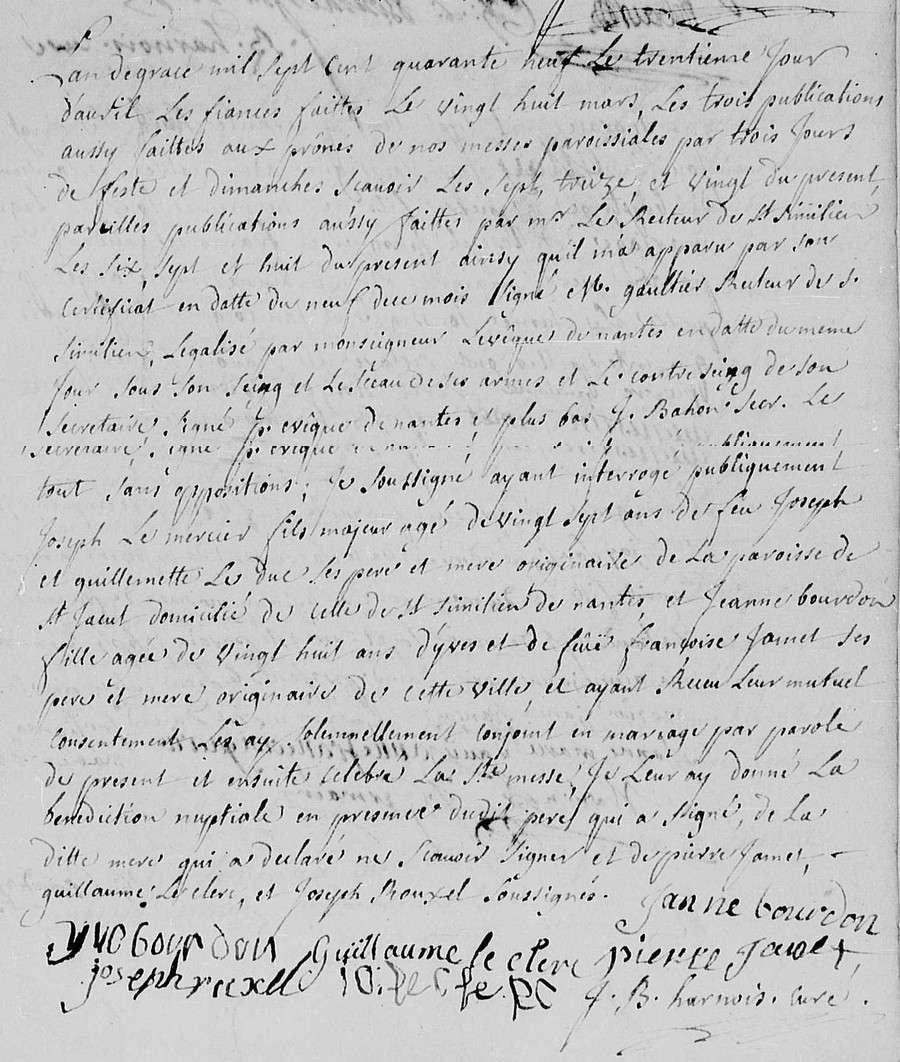 L'an de grace mil sept Cent quarante neuf Le trentieme Jour
d'avril Les fiances faittes Le vingt huit mars, Les trois publications
aussy faittes aux prônes de nos messes paroissiales par trois Jours
de feste et dimanches Scavoir Les Sept, treize, et vingt du present,
pareilles publications aussy faittes par mr Le Recteur de St Similien
Les Six, Sept et huit du present ainsy qu'il m'a apparu par son
Certificat en datte du neuf de ce mois Signé gaultier Recteur de S.
Similien, Legalisé par monseigneur Levêque de nantes en datte du meme
Jour Sous Son Seing et Le Sceau de ses armes et Le contreseing de son
Secretaire, Signé P. evêque de nantes et plus bas J. Bahon Secr. Le
Secretaire, Signé P. evêque publiquement
tout Sans oppositions; Je Soussigné ayant interrogé publiquement
Joseph Le mercier fils majeur agé de vingt Sept ans de feu Joseph
et guillemette Le duc Ses pere et mere originaire de La paroisse de
St Jacut domicilié de Celle de St Similien de nantes, et Jeanne bourdon
fille agée de vingt huit ans d'yves et de françoise Jamet Ses
pere et mere originaire de cette ville, et ayant Receu Leur mutuel
Consentement Les ay Solemnellement Conjoint en mariage par parole
de present et ensuite Celebré La Ste messe, Je Leur ay donné La
benediction nuptiale en presence dudit pere qui a Signé, de La
ditte mere qui a declaré ne Scavoir Signer et de pierre Jamet,
guillaume Le clerc, et Joseph Rouxel Soussignés.
Janne bourdon
yvo bourdon Guillaume le clerc pierre Jamet
joseph ruxell J. B. harnois. curé.